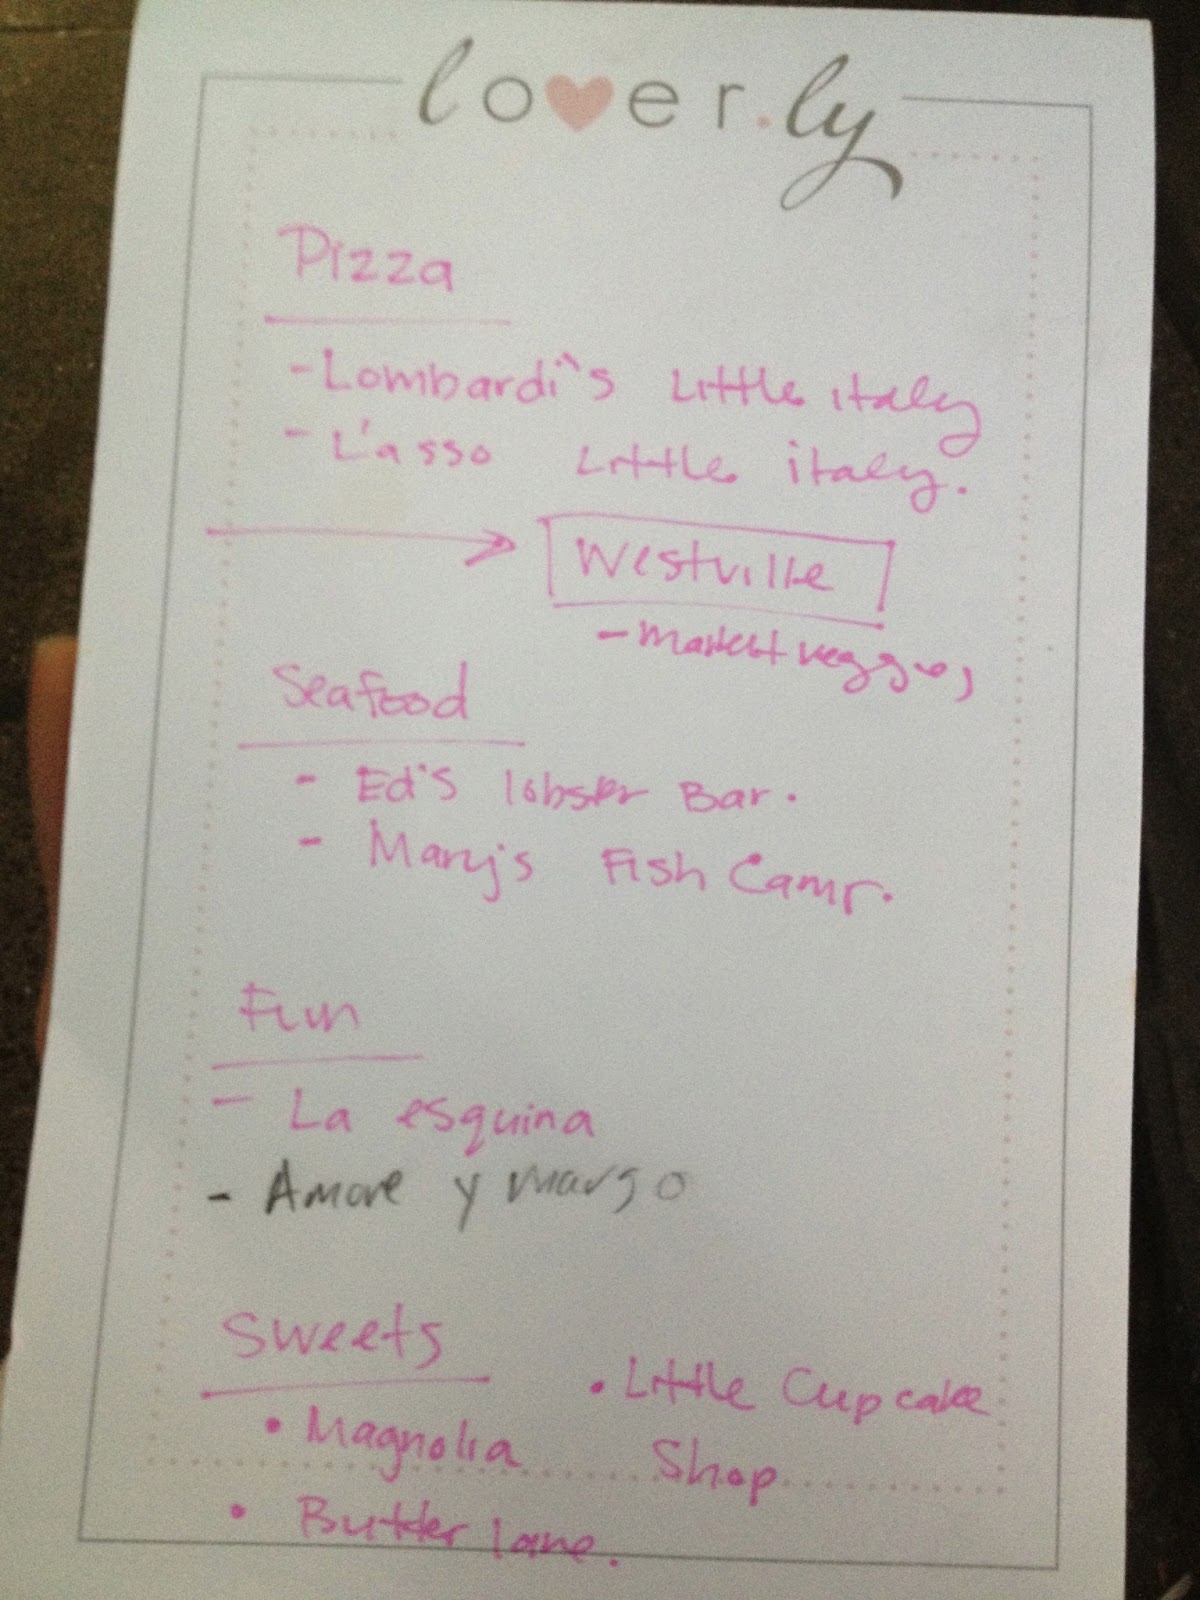 lover.ly
Pizza
- Lombardi's Little italy
- L'asso Little italy.
Westville
- market veggies
Seafood
- Ed's lobster Bar.
- Mary's Fish Camp.
Fun
- La esquina
- Amore y margo
Sweets
• Little Cupcake
• Magnolia
Shop
• Butter lane.